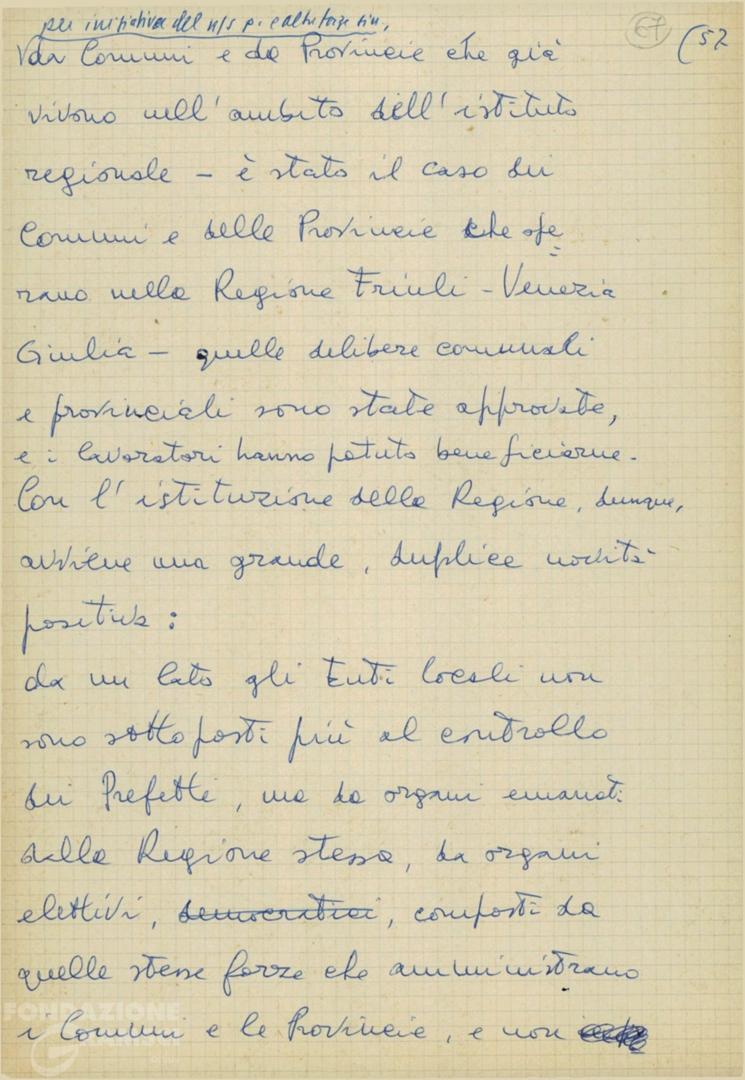 per iniziativa del n/s p. e altre forze sin,
67
(52
da Comuni e da Provincie che già
vivono nell'ambito dell'istituto
regionale – è stato il caso dei
Comuni e delle Provincie che ope
rano nella Regione Friuli-Venezia
Giulia – quelle delibere comunali
e provinciali sono state approvate,
e i lavoratori hanno potuto beneficiarne.
Con l'istituzione della Regione, dunque,
avviene una grande, duplice novità
positiva:
da un lato gli Enti locali non
sono sottoposti più al controllo
dei Prefetti, ma da organi emanati
dalla Regione stessa, da organi
elettivi, democratici, composti da
quelle stesse forze che amministrano
i Comuni e le Provincie, e non
FONDAZIONE